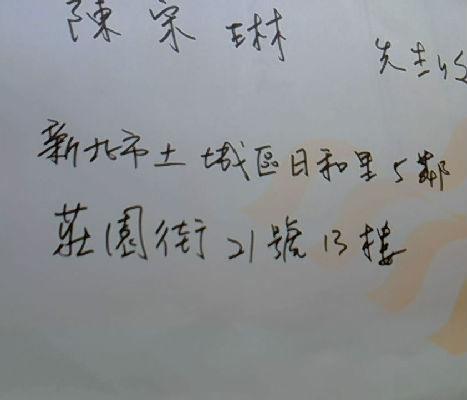 陳宗琳
先生收
新北市土城區日和里5鄰
莊園街21號13樓